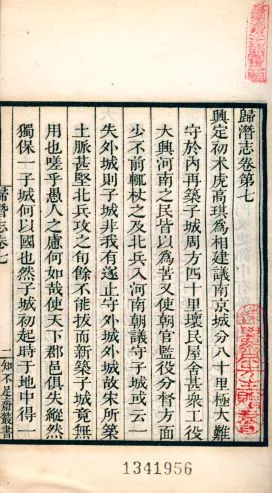 歸潛志卷第七
興定初朮虎高琪為相建議南京城方八十里極大難
守於內再築子城周方四十里壞民屋舍甚衆工役
大興河南之民皆以為苦又使朝官監役分督方面
少不前輒杖之及北兵入河南朝議守子城或云一
失外城則子城非我有遂止守外城外城故宋所築
土脈甚堅北兵攻之旬餘不能拔而新築子城竟無
用也嗟乎愚人之慮何如哉使天下郡邑俱失縱然
獨保一子城何以國也然子城初起時于地中得一
歸潛志卷七
一
知不足齋叢書
1341956